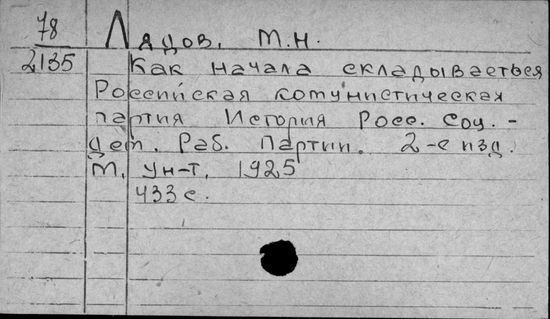 78 Лядов, М.Н.
2135 Как начала складываеться
Российская комунистическая
партия История Росс. Соц. -
дем. Раб. Партии. 2-е изд.
М, Ун-т, 1925
433 с.